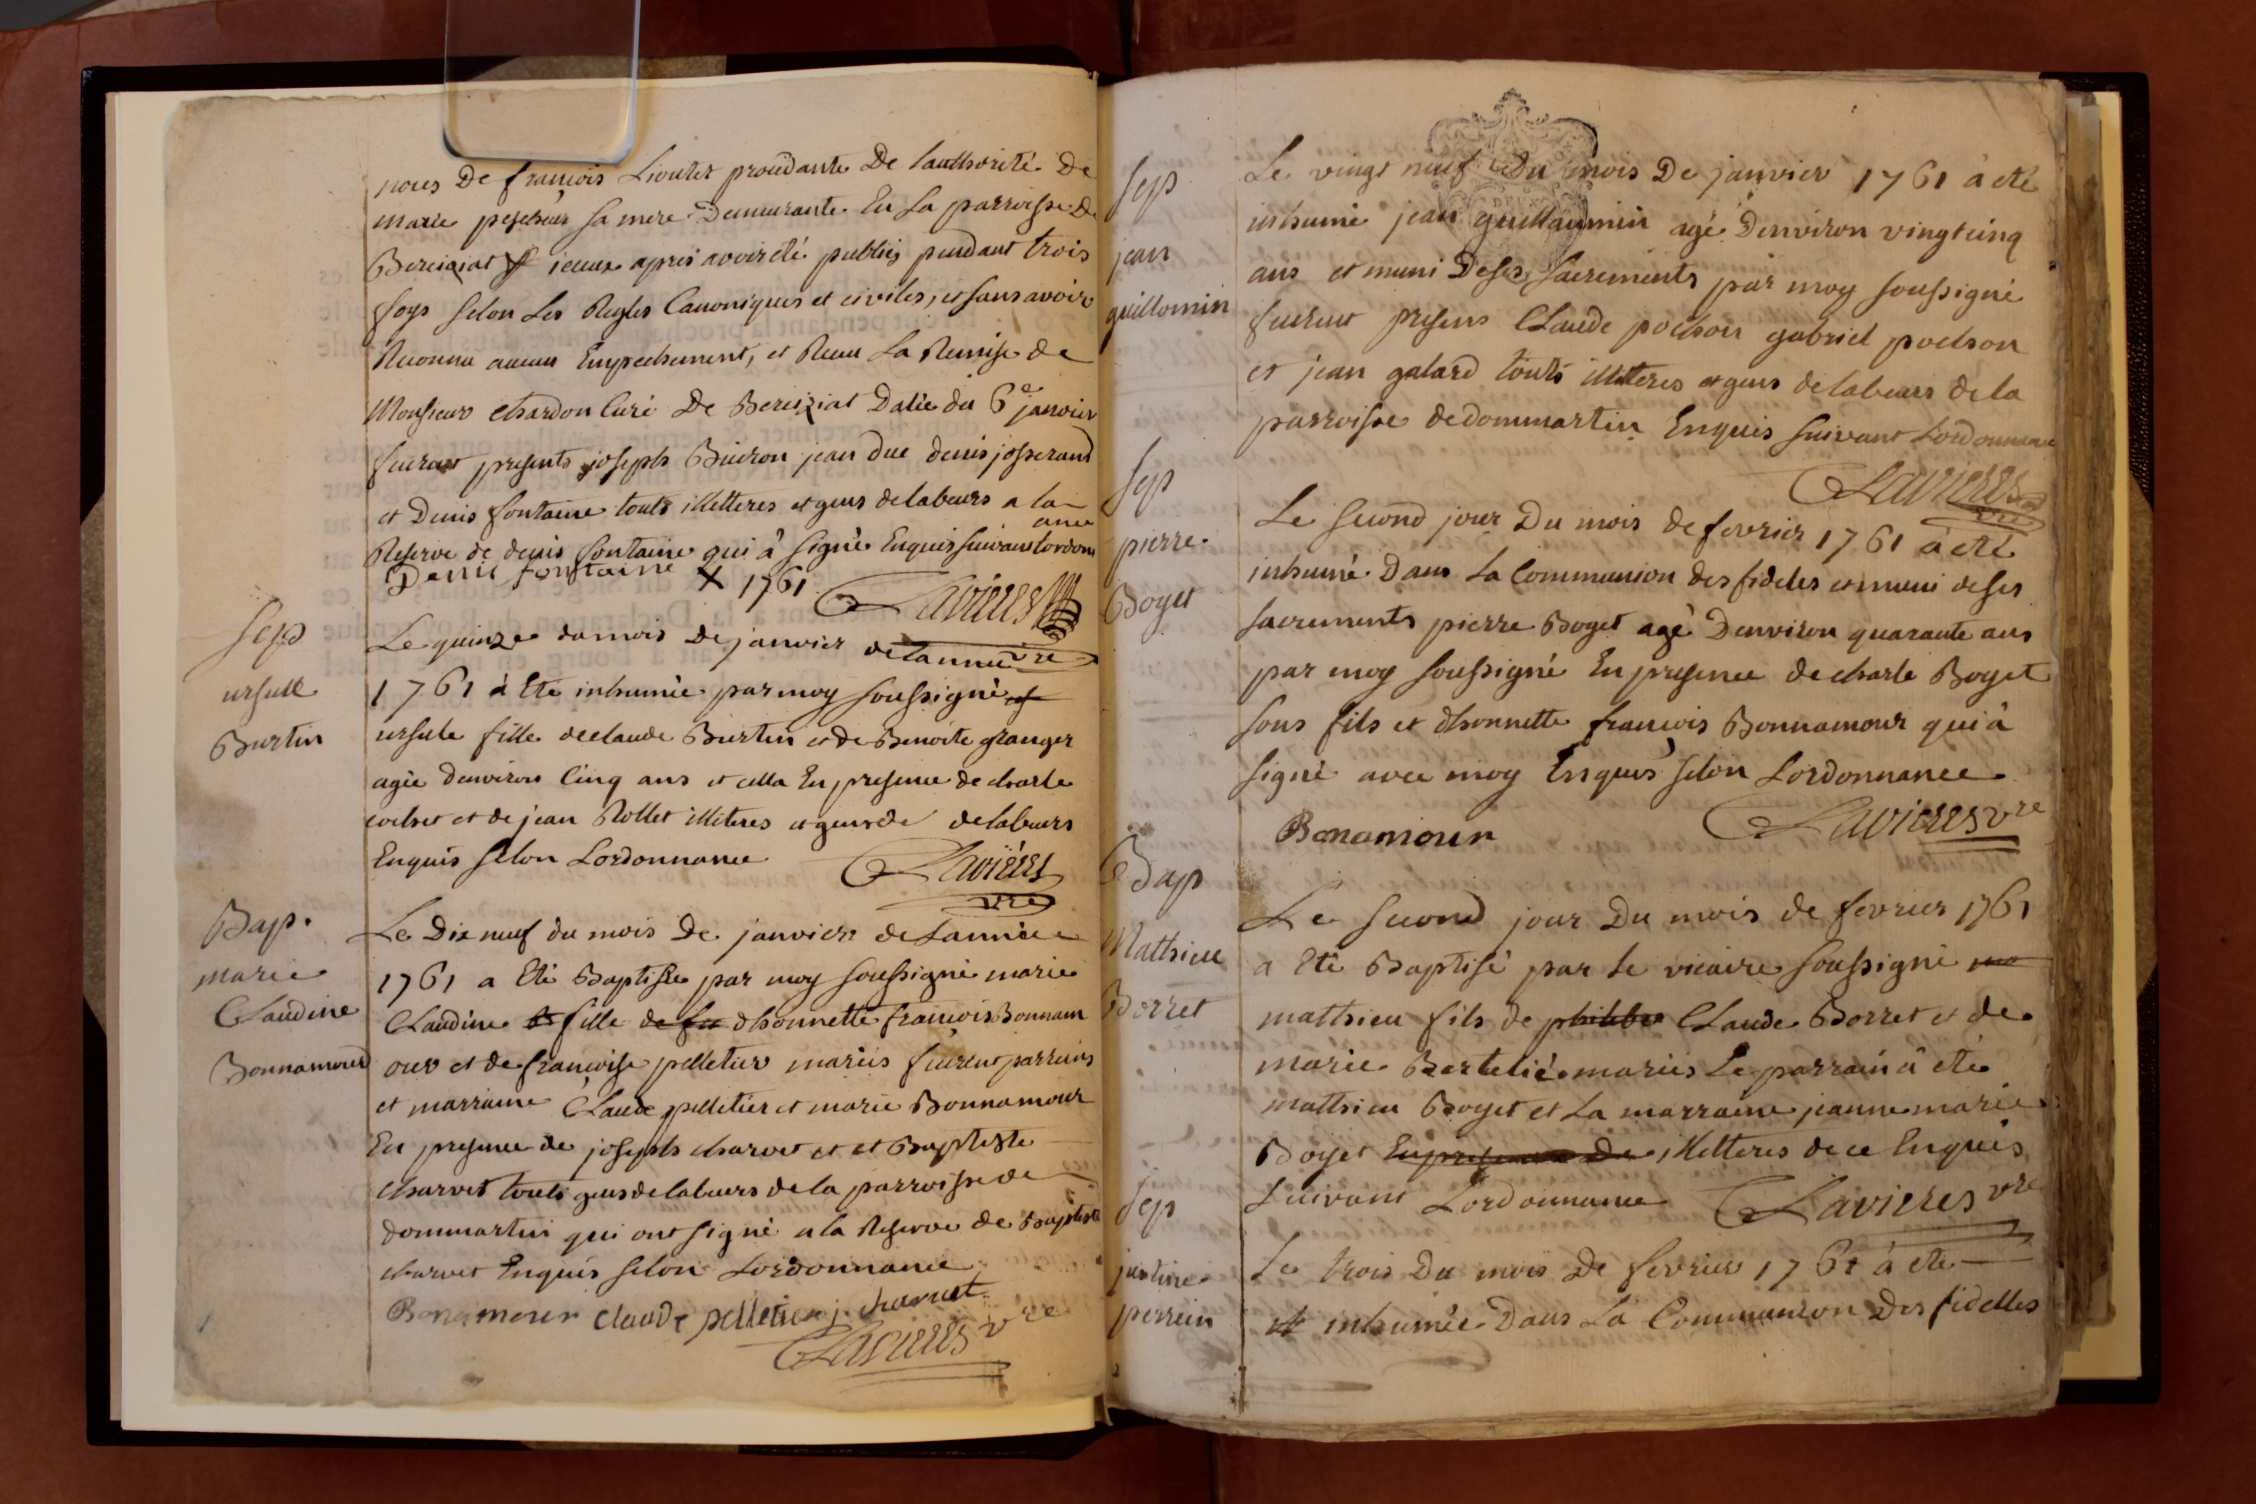 nous De françois Lioutet procedante De lauthorité De
marie pescheur sa mere Demeurante En La parroisse De
Bereiziat iceux apres avoir été publiés pendant trois
foys selon Les Regles Canoniques et civiles, et sans avoir
Reconnu aucun Empeschement, et Receu La Remise de
Monsieur chardon Curé De Bereiziat Datée du 6e janvier
furent presents joseph Buiron jean duc denis josserand
et Denis fontaine touts illetteres et gens de labeurs a la
Reserve de denis fontaine qui à signé Enquis suivant lordonn
ance
Denis fontaine x 1761
Lavieres vre
Sep
ursule
Burtin
Le quinze du mois De janvier de lannée
1761 à Eté inhumée par moy soussigné
ursule fille de claude Burtin et de Benoite granger
agée denviron Cinq ans et cella En presence de charle
cochet et de jean Rollet illiteres et gens de de labeurs
Enquis selon Lordonnance
Lavieres
vre
Bap.
marie
Claudine
Bonnamour
Le Dix neuf du mois De janvier de Lannée
1761 a Eté Baptisée par moy soussigné marie
Claudine fille de feu dhonnette françois Bonnam
our et de françoise pelletier mariés furent parrains
et marraine Claude pelletier et marie Bonnamour
En presence de joseph charvet et et Baptiste
charvet touts gens de labeurs de la parroisse de
dommartin qui ont signé a la Reserve de Baptiste
charvet Enquis selon Lordonnance
Bonamour claude pelletier j. charvet
Lavieres vre
Sep
jean
guillomin
Le vingt neuf du mois De janvier 1761 à eté
inhumé jean guillaumin agé Denviron vingt cinq
ans et muni De ses sacrements par moy soussigné
furent presens Claude pochon gabriel pochon
et jean galard touts illitteres et gens de labeurs de la
parroisse de dommartin Enquis suivant Lordonnance
Lavieres
vre
Sep
pierre
Boget
Le second jour Du mois de fevrier 1761 à eté
inhumé Dans La Communion des fideles et muni de ses
sacrements pierre Boget agé Denviron quarante ans
par moy soussigné En presence de charle Boget
sons fils et dhonnette françois Bonnamour qui à
signé avec moy Enquis selon Lordonnance
Bonamour
Lavieres vre
Bap
Mathieu
Borret
Le second jour Du mois de fevrier 1761
a Eté Baptisé par le vicaire soussigné
mathieu fils de philiber Claude Borret et de
marie Bertelié mariés Le parrain à eté
mathieu Boget et La marraine jeanne marie
Boget En presence De illetteres de ce Enquis
suivant Lordonnance
Lavieres vre
Sep
justine
perrein
Le trois Du mois De fevrier 1761 à eté
inhumée Dans La Communion Des fidelles